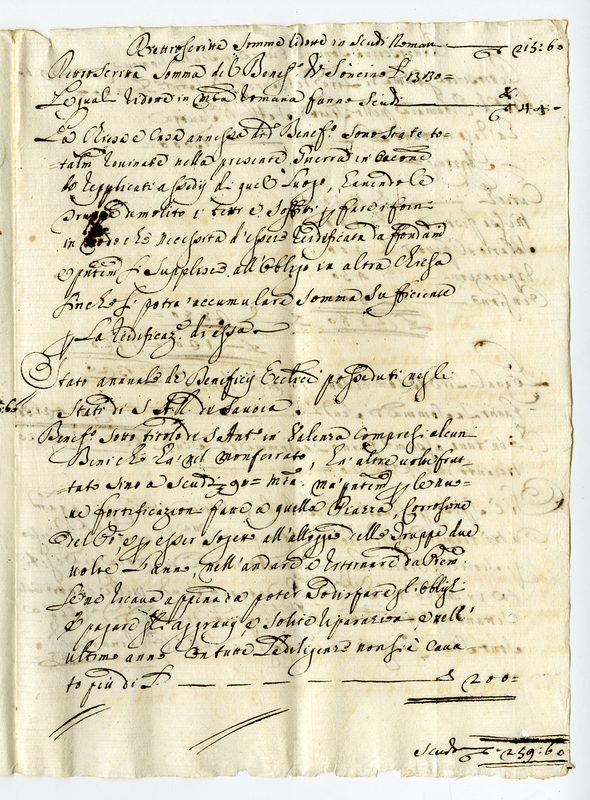 Retroscritta Somma ridotta in Scudi Roman 215:60
Retroscritta Somma del Benef.o di Soncino £ 1330=
Le quali ridotte in mta Romana fanno Scudi 44:
La Chiesa e Casa annessa a d.o Benef.o sono state to-
talm.te rovinate nella presente Guerra in
replicati assedij di quel Luogo, havendo le
Truppe demolito i tetti e Soffitti p fare
in modo che necessita d'essere reedificata da fondam.ti
e p.ntem.te si supplisce all'obligo in altra Chiesa
finche si potrà accumulare somma sufficiente
p la reedificaz.e di essa.
Stato annuale de Beneficij Eccl.ci posseduti negli
Stati di S. A. R. di Savoia.
Benef.o sotto titolo di S. Ant.o in Valenza compresi alcuni
Beni che hà nel Monferrato, hà altre volte frut-
tato sino a Scudi 90= mta. ma p.ntem.te p le nuo-
ve fortificazioni fatte a quella Piazza, Corrosione
del Pò, e p esser sogetto all'alloggio delle Truppe due
volte l'anno, nell'andare e ritornare da
se ne ricava appena da poter sodisfare gl'oblighi
e pagare gli aggravij e solite riparazioni e nell'
ultimo anno con tutte le diligenze non si è cava
to più di £. 200=
Scudi 259:60